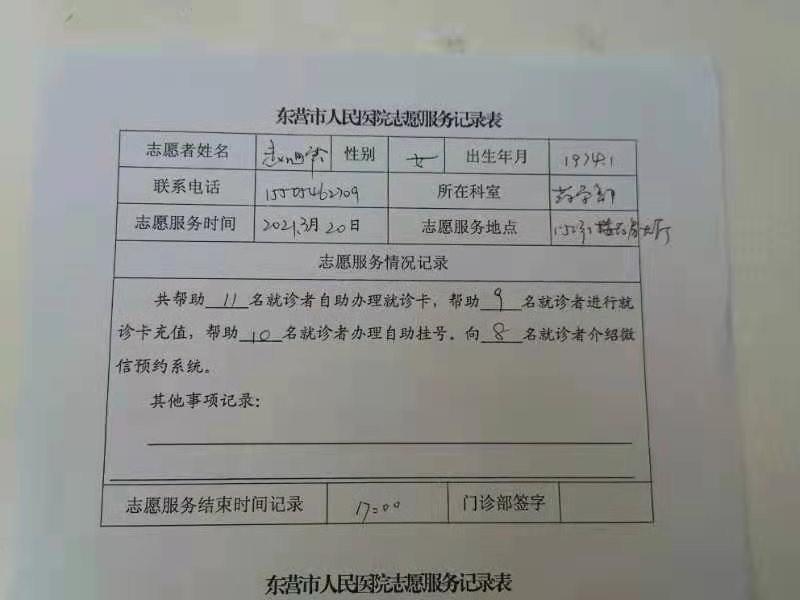 东营市人民医院志愿服务记录表
志愿者姓名 性别 女 出生年月 1974.1
联系电话 15505462709 所在科室 药学部
志愿服务时间 2021.3月20日 志愿服务地点
志愿服务情况记录
共帮助 11 名就诊者自助办理就诊卡，帮助 9 名就诊者进行就
诊卡充值，帮助 10 名就诊者办理自助挂号。向 8 名就诊者介绍微
信预约系统。
其他事项记录：
志愿服务结束时间记录 17:00 门诊部签字
东营市人民医院志愿服务记录表